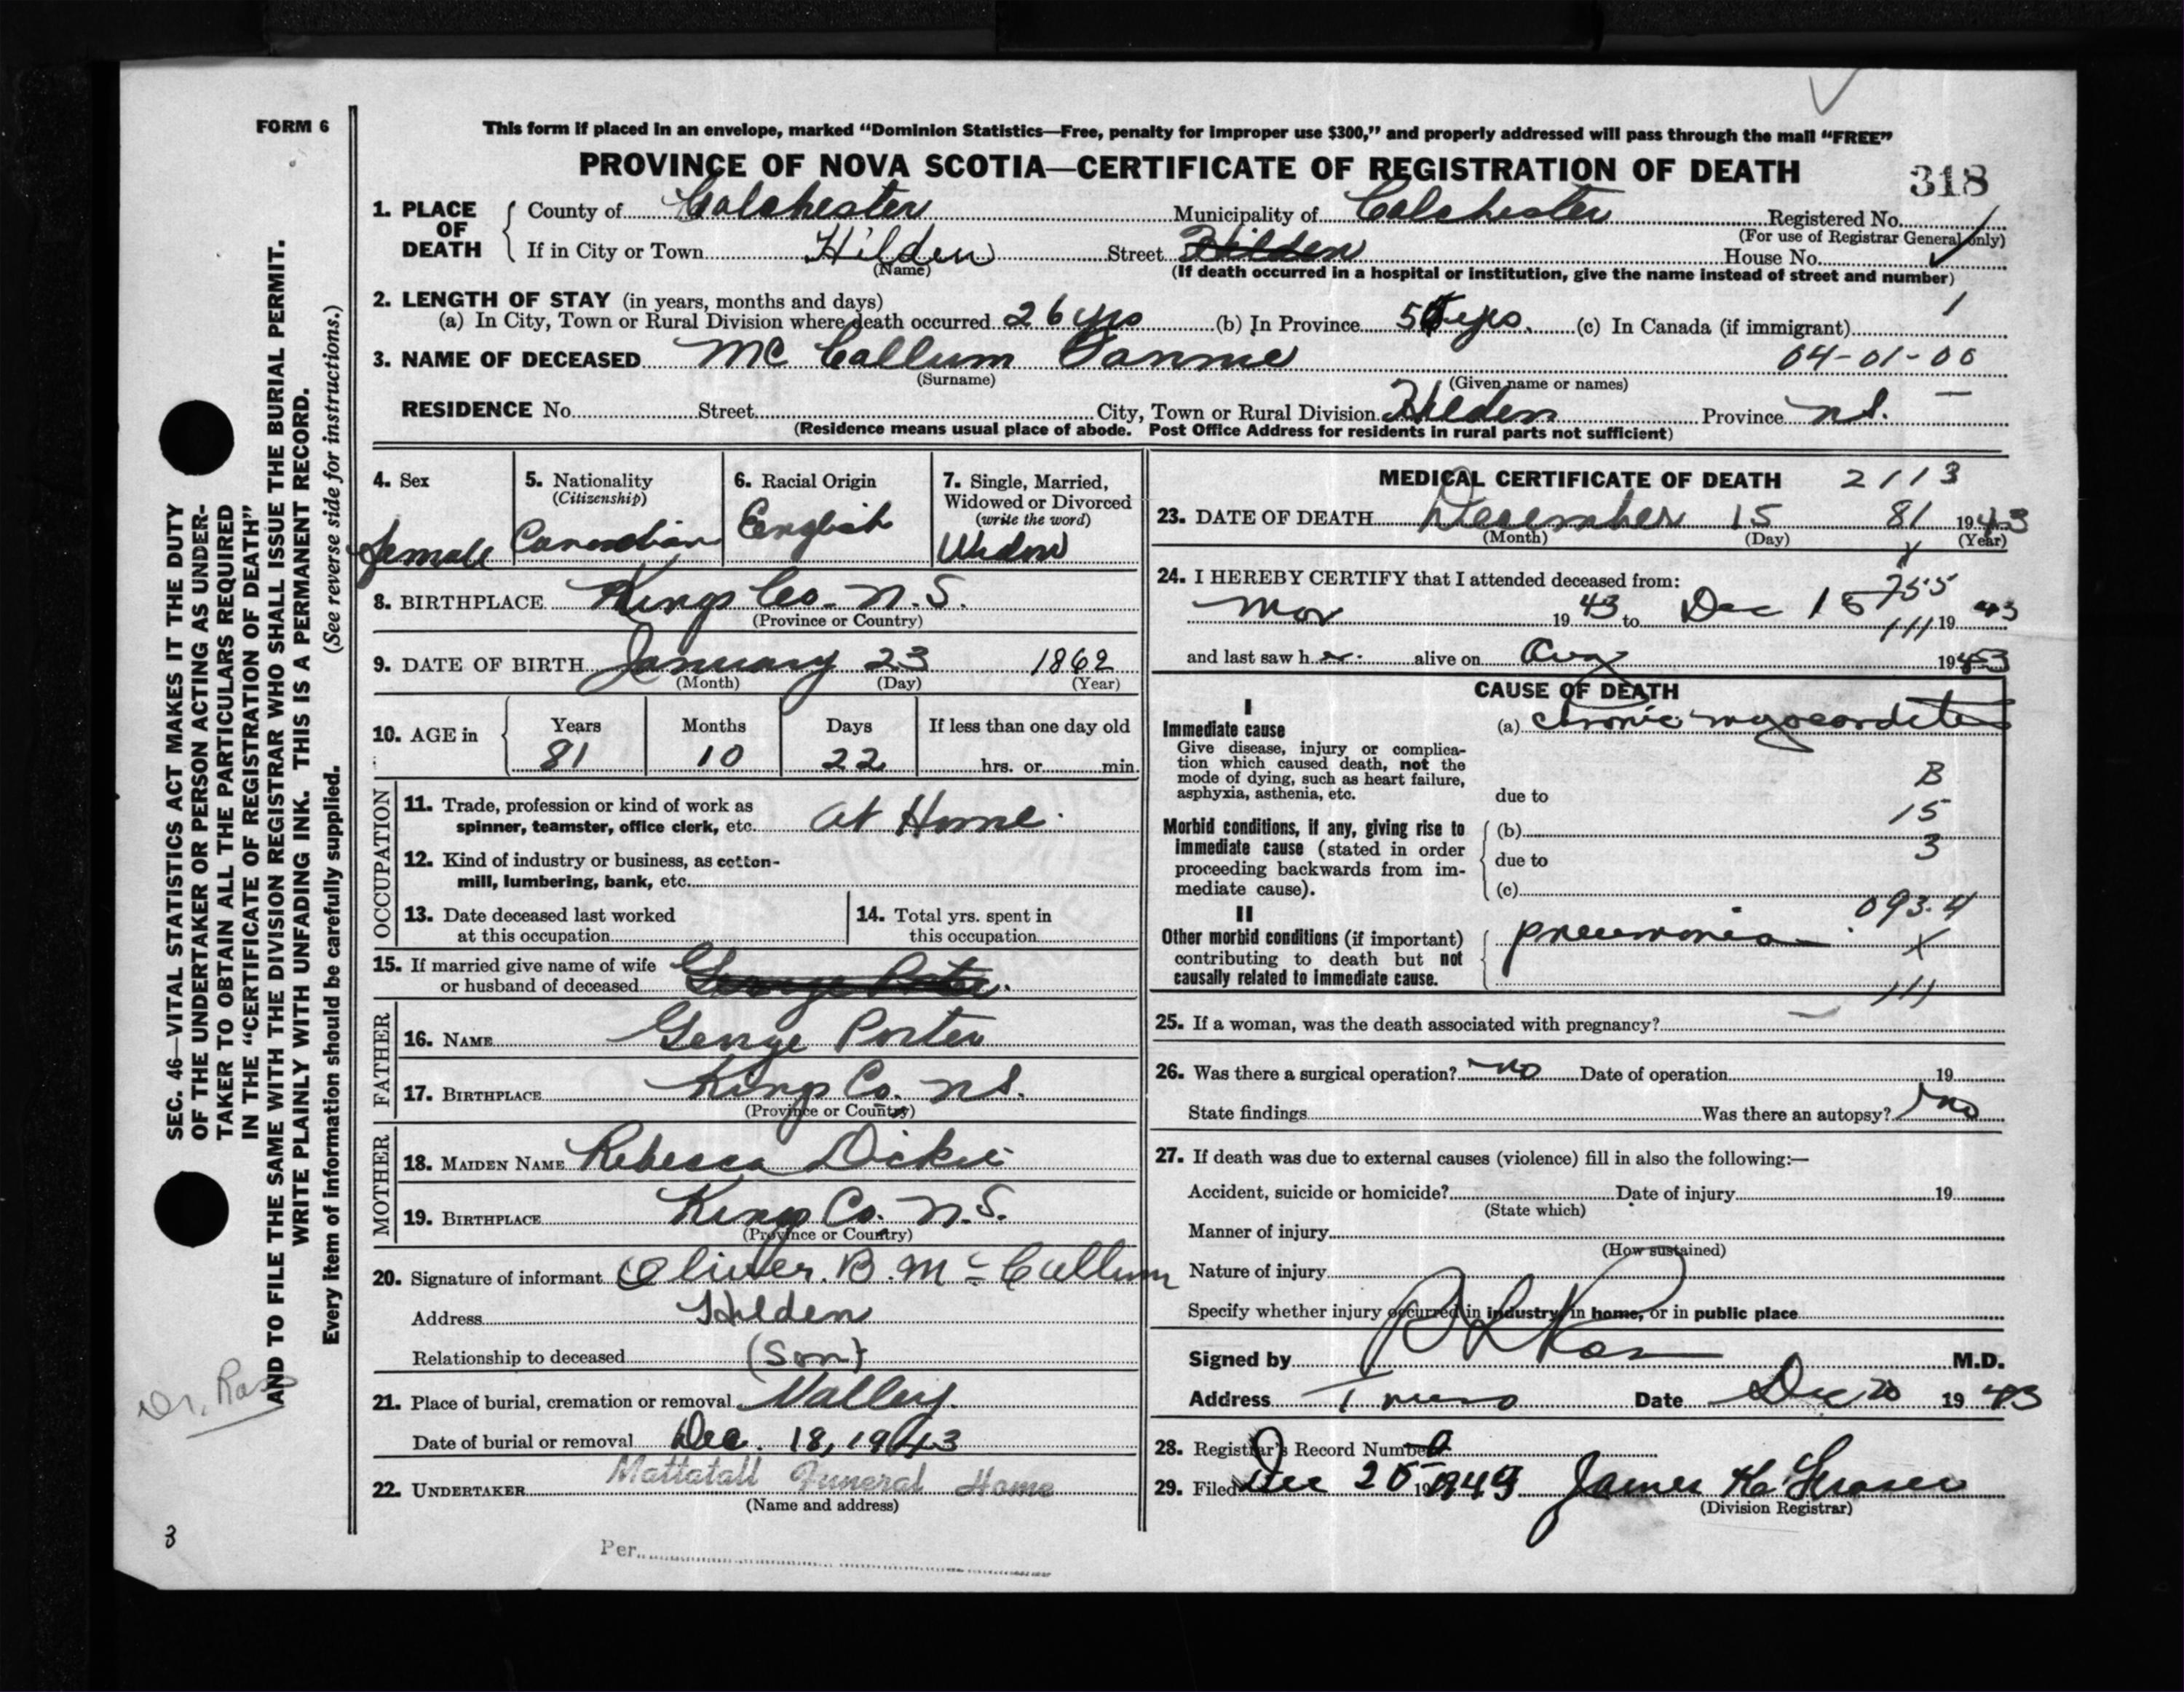 FORM 6
This form if placed in an envelope, marked "Dominion Statistics—Free, penalty for improper use $300," and properly addressed will pass through the mail "FREE"
PROVINCE OF NOVA SCOTIA—CERTIFICATE OF REGISTRATION OF DEATH
318
1. PLACE OF DEATH
County of Colchester Municipality of Colchester Registered No.
(For use of Registrar General only)
If in City or Town Hilden Street Hilden House No.
(Name) (If death occurred in a hospital or institution, give the name instead of street and number)
2. LENGTH OF STAY (in years, months and days) 1
(a) In City, Town or Rural Division where death occurred 26 yrs (b) In Province yrs. (c) In Canada (if immigrant)
3. NAME OF DECEASED Mc Callum Fannie 04-01-00
(Surname) (Given name or names)
RESIDENCE No. Street City, Town or Rural Division Hilden Province N.S.
(Residence means usual place of abode. Post Office Address for residents in rural parts not sufficient)
4. Sex
female
5. Nationality
(Citizenship)
Canadian
6. Racial Origin
English
7. Single, Married,
Widowed or Divorced
(write the word)
Widow
8. BIRTHPLACE Kings Co. N.S.
(Province or Country)
9. DATE OF BIRTH January 23 1862
(Month) (Day) (Year)
10. AGE in
Years Months Days If less than one day old
81 10 22 hrs. or min.
OCCUPATION
11. Trade, profession or kind of work as
spinner, teamster, office clerk, etc. At Home.
12. Kind of industry or business, as cotton-
mill, lumbering, bank, etc.
13. Date deceased last worked
at this occupation
14. Total yrs. spent in
this occupation
15. If married give name of wife
or husband of deceased George Porter
FATHER
16. NAME George Porter
17. BIRTHPLACE Kings Co. N.S.
(Province or Country)
MOTHER
18. MAIDEN NAME Rebecca Dickie
19. BIRTHPLACE Kings Co. N.S.
(Province or Country)
20. Signature of informant Oliver. B. Mc Callum
Address Hilden
Relationship to deceased (Son)
21. Place of burial, cremation or removal Valley.
Date of burial or removal Dec. 18, 1943
22. UNDERTAKER Mattatall Funeral Home
(Name and address)
Per
MEDICAL CERTIFICATE OF DEATH 2113
23. DATE OF DEATH December 15 81 1943
(Month) (Day) (Year)
X
24. I HEREBY CERTIFY that I attended deceased from:
755
1943 to Dec 15 1943
111
and last saw her alive on Aug 1943
CAUSE OF DEATH
I
Immediate cause
Give disease, injury or complica-
tion which caused death, not the
mode of dying, such as heart failure,
asphyxia, asthenia, etc.
(a) Chronic myocarditis
B
due to
15
Morbid conditions, if any, giving rise to
immediate cause (stated in order
proceeding backwards from im-
mediate cause).
(b)
3
due to
(c)
093.4
II
Other morbid conditions (if important)
contributing to death but not
causally related to immediate cause.
pneumonia
X
111
25. If a woman, was the death associated with pregnancy? —
26. Was there a surgical operation? no Date of operation 19
State findings Was there an autopsy? no
27. If death was due to external causes (violence) fill in also the following:—
Accident, suicide or homicide? Date of injury 19
(State which)
Manner of injury
(How sustained)
Nature of injury
Specify whether injury occurred in industry, in home, or in public place
Signed by M.D.
Address Truro Date Dec 20 1943
28. Registrar's Record Number
29. Filed Dec 1943 James K. Fraser
(Division Registrar)
SEC. 46—VITAL STATISTICS ACT MAKES IT THE DUTY
OF THE UNDERTAKER OR PERSON ACTING AS UNDER-
TAKER TO OBTAIN ALL THE PARTICULARS REQUIRED
IN THE "CERTIFICATE OF REGISTRATION OF DEATH"
AND TO FILE THE SAME WITH THE DIVISION REGISTRAR WHO SHALL ISSUE THE BURIAL PERMIT.
WRITE PLAINLY WITH UNFADING INK. THIS IS A PERMANENT RECORD.
Every item of information should be carefully supplied. (See reverse side for instructions.)
Dr. Ross
3